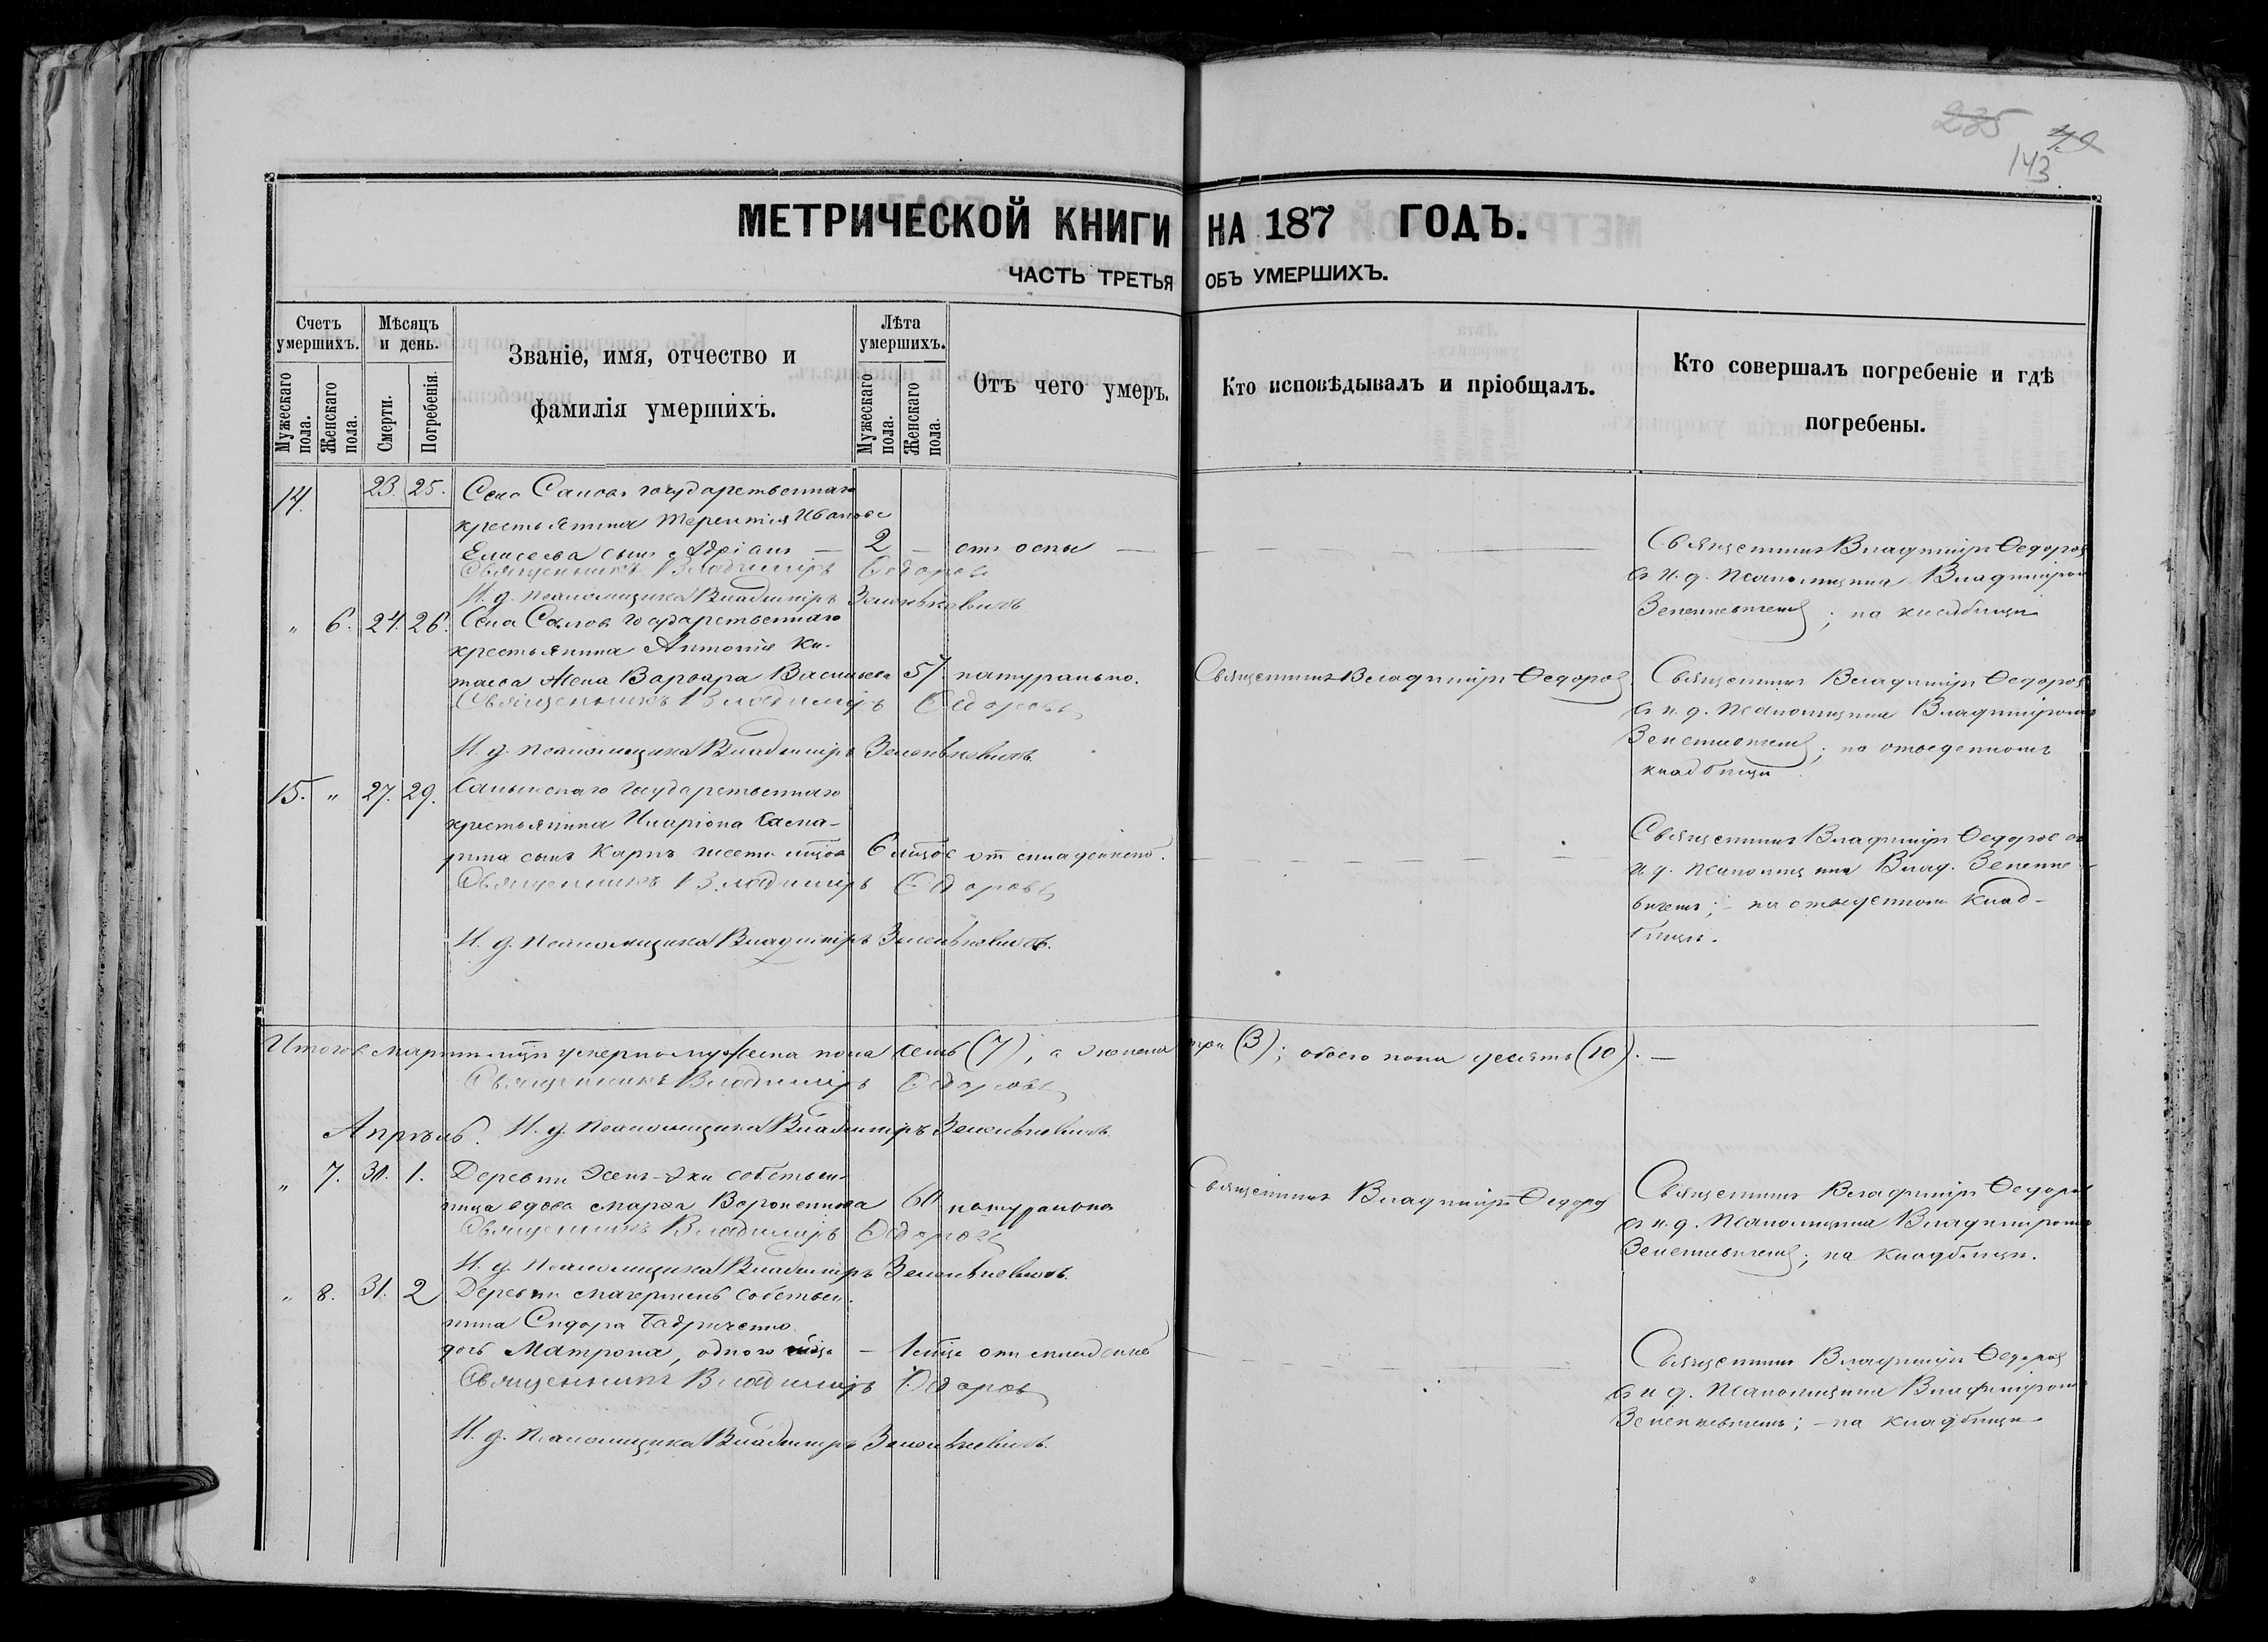 235 72
143
МЕТРИЧЕСКОЙ КНИГИ НА 187 ГОДЪ.
ЧАСТЬ ТРЕТЬЯ ОБЪ УМЕРШИХЪ.
Счетъ умершихъ.
Мужескаго пола.
Женскаго пола.
Мѣсяцъ и день.
Смерти.
Погребенія.
Званіе, имя, отчество и
фамилія умершихъ.
Лѣта умершихъ.
Мужескаго пола.
Женскаго пола.
Отъ чего умеръ.
Кто исповѣдывалъ и пріобщалъ.
Кто совершалъ погребеніе и гдѣ
погребены.
14. 23. 25. Села государственнаго
крестьянина Терентія Иванова
Елисеева сынъ Адріанъ — 2 — отъ оспы —
Священникъ Владиміръ Ѳедоровъ
И. д. псаломщика Владиміръ Зеленкевичъ
Священникъ Владиміръ Ѳедоровъ
съ и. д. псаломщика Владиміромъ
Зеленкевичемъ; на кладбищѣ
" 6. 24. 26. Села государственнаго
крестьянина Антонія Ки-
таева жена Варвара Васильева 57. натурально.
Священникъ Владиміръ Ѳедоровъ
И. д. псаломщика Владиміръ Зеленкевичъ.
Священникъ Владиміръ Ѳедоровъ
Священникъ Владиміръ Ѳедоровъ
съ и. д. псаломщика Владиміромъ
Зеленкевичемъ; на отведенномъ
кладбищѣ
15. " 27. 29. государственнаго
крестьянина Иларіона
сынъ Карпъ шести мцовъ 6 мцовъ отъ младенческ.
Священникъ Владиміръ Ѳедоровъ
И. д. псаломщика Владиміръ Зеленкевичъ.
Священникъ Владиміръ Ѳедоровъ съ
и. д. псаломщика Влад. Зеленке-
вичемъ; на отведенномъ клад-
бищѣ.
Итого въ мартѣ мцѣ умерло мужеска пола семь (7), а женска три (3); обоего пола десять (10). —
Священникъ Владиміръ Ѳедоровъ
Апрѣль. И. д. псаломщика Владиміръ Зеленкевичъ.
" 7. 30. 1. Деревни собствен-
ница вдова Марѳа 60 натурально
Священникъ Владиміръ Ѳедоровъ
И. д. псаломщика Владиміръ Зеленкевичъ.
Священникъ Владиміръ Ѳедоровъ
Священникъ Владиміръ Ѳедоровъ
съ и. д. псаломщика Владиміромъ
Зеленкевичемъ; на кладбищѣ.
" 8. 31. 2 Деревни собствен-
ника Сидора
дочь Матрона, одного мца — 1 мца отъ младенческ
Священникъ Владиміръ Ѳедоровъ
И. д. псаломщика Владиміръ Зеленкевичъ.
Священникъ Владиміръ Ѳедоровъ
съ и. д. псаломщика Владиміромъ
Зеленкевичемъ; — на кладбищѣ